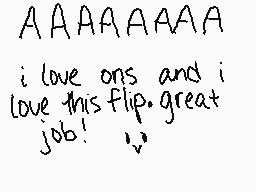 AAAAAAAA
i love ons and i
love this flip. great
job!